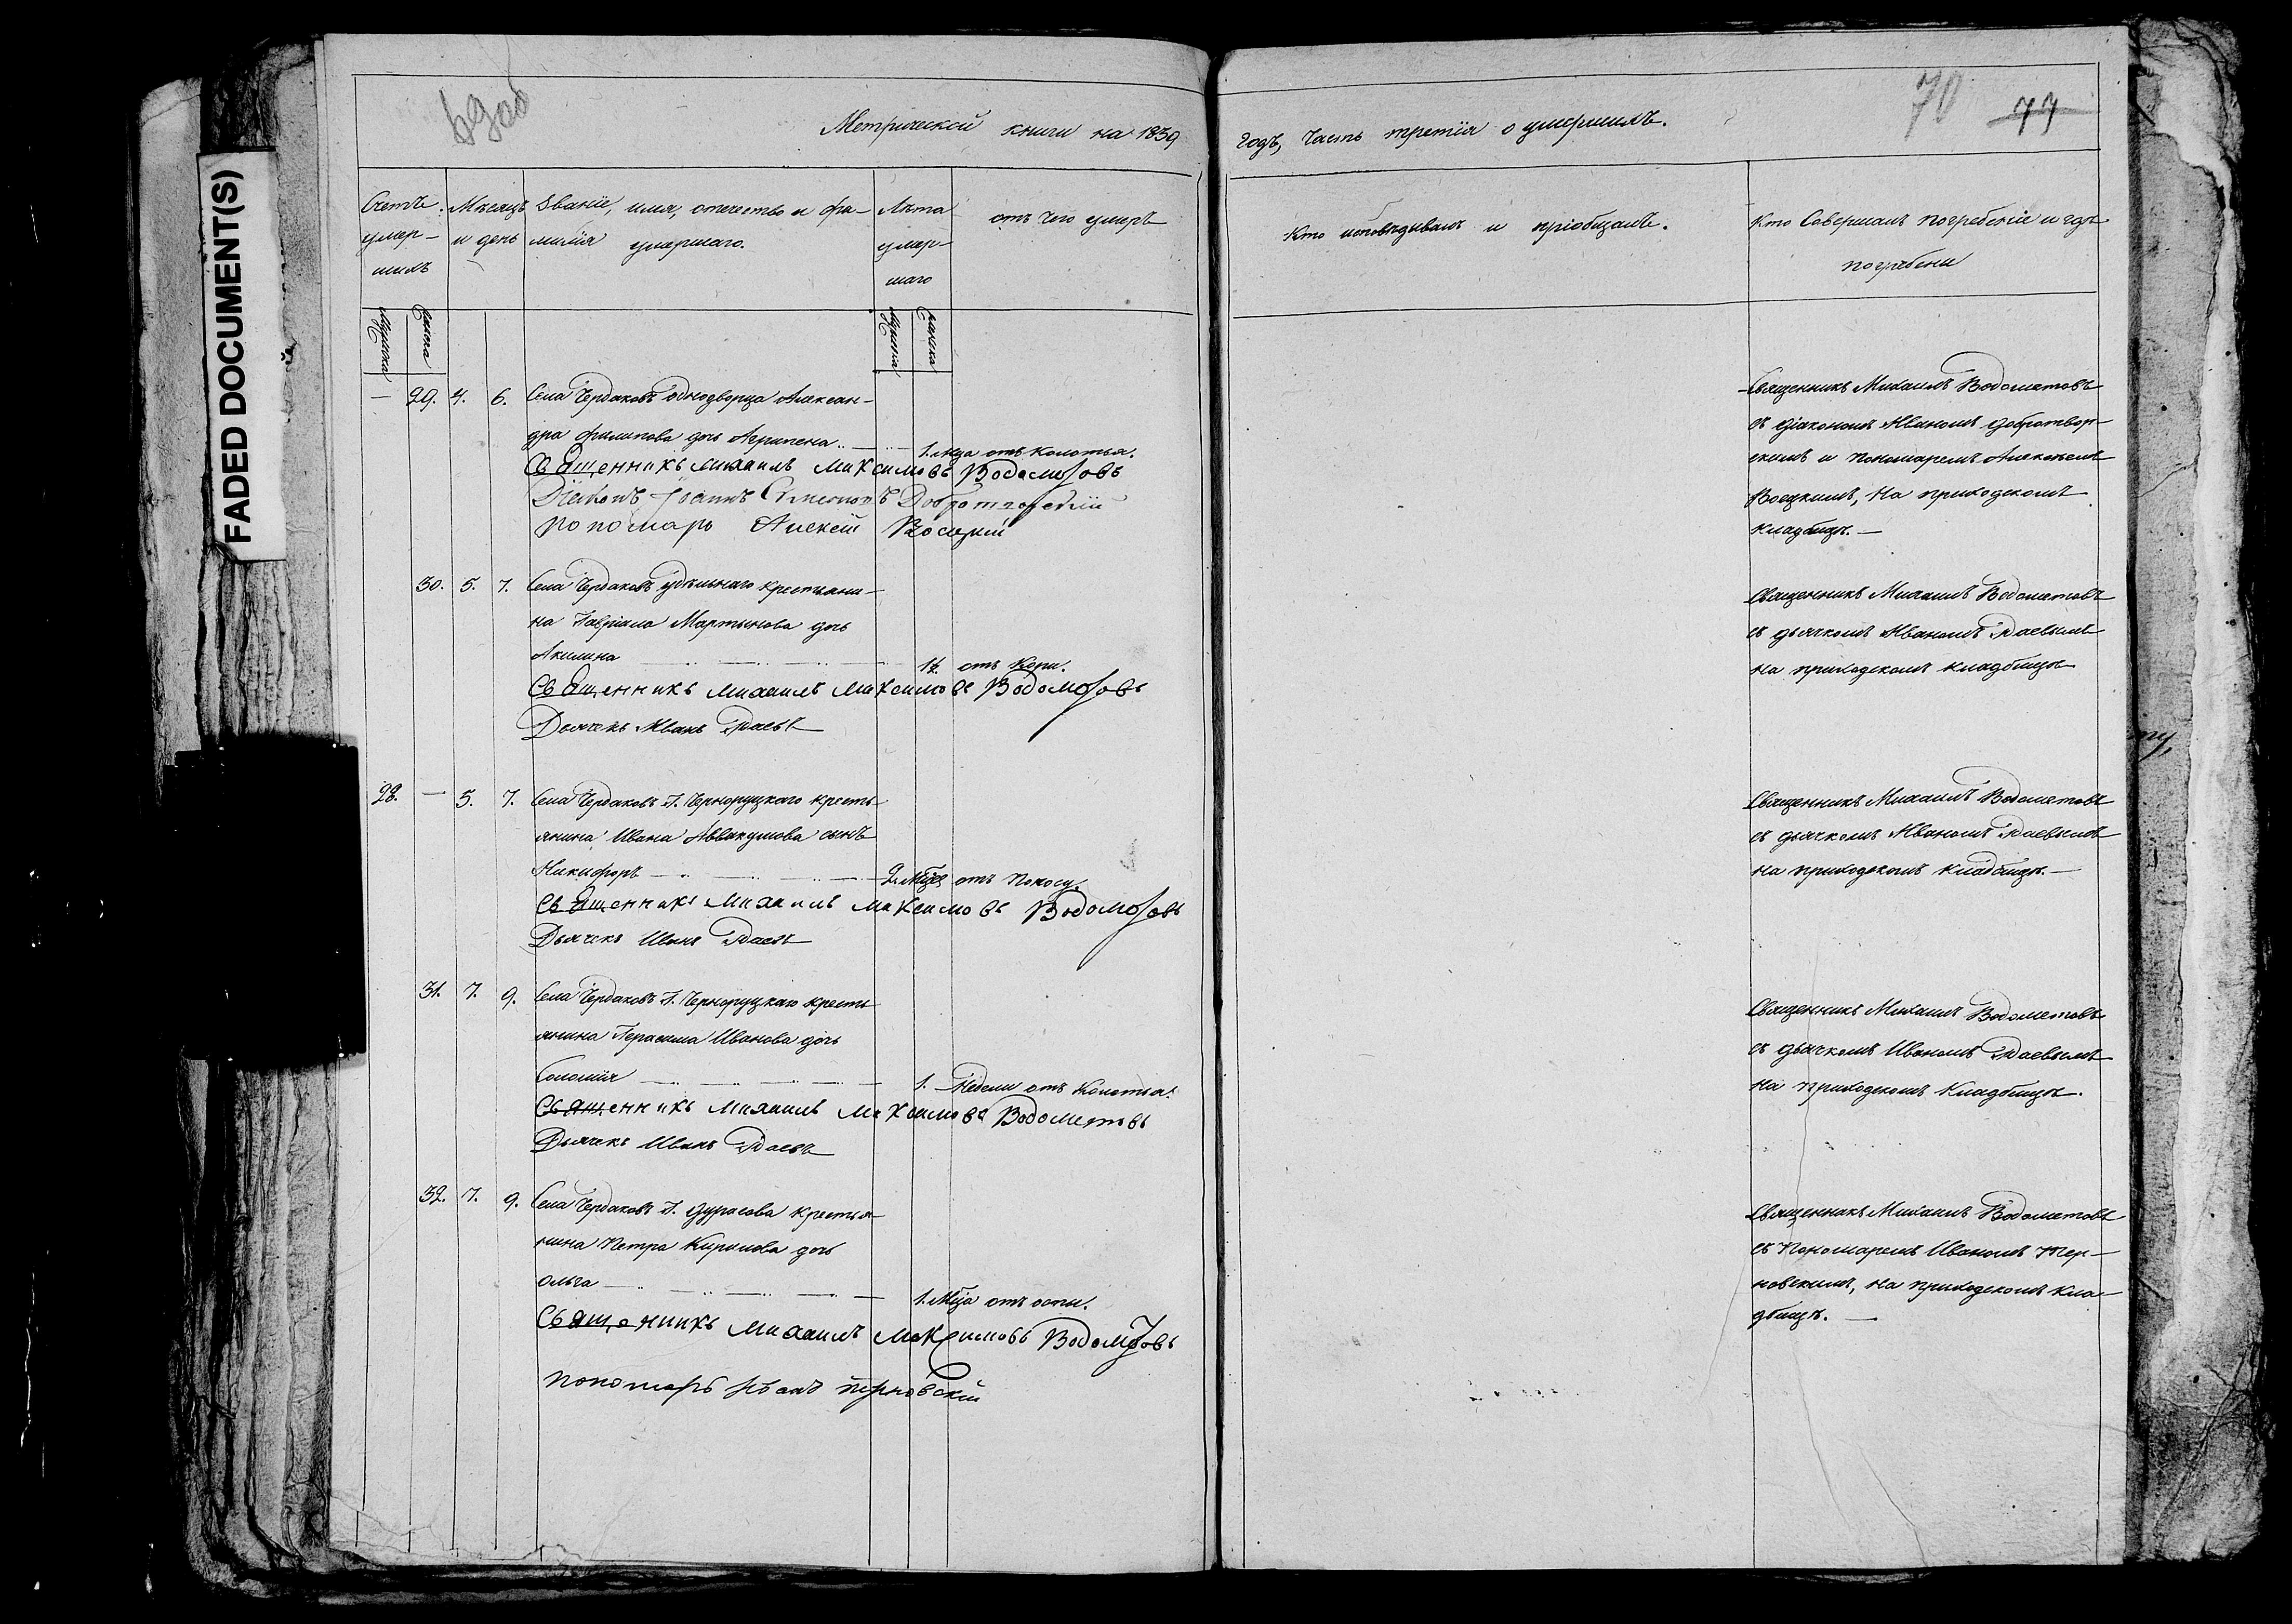 FADED DOCUMENT(S)
Метрической книги на 1839
годъ, Часть третія о умершихъ.
70 73
Счетъ умер-
шихъ
Мужеска
Женска
Месяцъ
и день
Званіе, имя, отечество и фа-
милія умершаго.
Лѣта
умер-
шаго
Мужеска
Женска
отъ чего умеръ
Кто исповѣдывалъ и пріобщалъ.
Кто Совершалъ погребеніе и гдѣ
погребены
— 29. 4. 6. Села Чердаковъ Однодворца Алексан-
дра Филипова дочь Агрипена 1. Мца отъ Колотья.
Священникъ Михаилъ Максимовъ Водометовъ
Діаконъ Іоаннъ Симеоновъ Добротворскій
Пономарь Алексѣй Восцкій
Священникъ Михаилъ Водометовъ
съ діакономъ Иваномъ Добротвор-
скимъ и пономаремъ Алексѣемъ
Восцкимъ, На приходскомъ
кладбищѣ.—
30. 5. 7. Села Чердаковъ Удѣльнаго крестьяни-
на Гавріила Мартынова дочь
Акилина 1½ отъ Кори.
Священникъ Михаилъ Максимовъ Водометовъ
Дьячекъ Иванъ Раевъ
Священникъ Михаилъ Водометовъ
съ дьячкомъ Иваномъ Раевымъ
на приходскомъ кладбищѣ
28. — 5. 7. Села Чердаковъ Г. Чернорудскаго кресть-
янина Ивана Аввакумова сынъ
Никифоръ 2. Мцев отъ Поносу.
Священникъ Михаилъ Максимовъ Водометовъ
Дьячекъ Иванъ Раевъ
Священникъ Михаилъ Водометовъ
съ дьячкомъ Иваномъ Раевымъ
на приходскомъ кладбищѣ.—
31. 7. 9. Села Чердаковъ Г. Чернорудскаго кресть
янина Герасима Иванова дочь
Соломія 1. Недели отъ Колотья.
Священникъ Михаилъ Максимовъ Водометовъ
Дьячекъ Иванъ Раевъ
Священникъ Михаилъ Водометовъ
съ дьячкомъ Иваномъ Раевымъ
на приходскомъ Кладбищѣ.
32. 7. 9. Села Чердаковъ Г. Дурасова крестья-
нина Петра Кирилова дочь
Ольга 1. Мца отъ оспы.
Священникъ Михаилъ Максимовъ Водометовъ
Пономарь Иванъ Терновскій
Священникъ Михаилъ Водометовъ
съ Пономаремъ Иваномъ Тер-
новскимъ, на приходскомъ кла-
дбищѣ.—